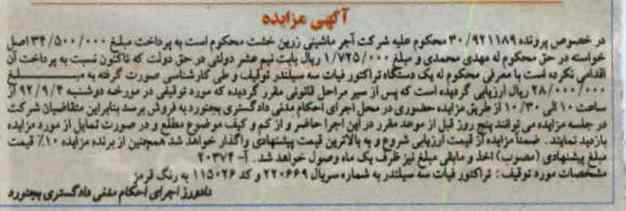 آگهی مزایده
در خصوص پرونده ۳۰/۹۲۱۱۸۹ محکوم علیه شرکت آجر ماشینی زرین خشت محکوم است به پرداخت مبلغ ۳۴/۵۰۰/۰۰۰ اصل
خواسته در حق محکوم له مهدی محمدی و مبلغ ۱/۷۲۵/۰۰۰ ریال بابت نیم عشر دولتی در حق دولت که تاکنون نسبت به پرداخت آن
اقدامی نکرده است با معرفی محکوم له یک دستگاه تراکتور فیات سه سیلندر توقیف و طی کارشناسی صورت گرفته به مبلغ
۲۸/۰۰۰/۰۰۰ ریال ارزیابی گردیده است که پس از سیر مراحل قانونی مقرر گردیده که مورد توقیفی در مورخه دوشنبه ۹۲/۹/۴ از
ساعت ۱۰ الی ۱۰/۳۰ از طریق مزایده حضوری در محل اجرای احکام مدنی دادگستری بجنورد به فروش برسد بنابراین متقاضیان شرکت
در جلسه مزایده می توانند پنج روز قبل از موعد مقرر در این اجرا حاضر و از کم و کیف موضوع مطلع و در صورت تمایل از مورد مزایده
بازدید نمایند. ضمناً مزایده از قیمت ارزیابی شروع و به بالاترین قیمت پیشنهادی واگذار خواهد شد همچنین از برنده مزایده ۱۰٪ قیمت
مبلغ پیشنهادی (مصوب) اخذ و مابقی مبلغ نیز ظرف یک ماه وصول خواهد شد. آ-۲۰۳۷۴
مشخصات مورد توقیف: تراکتور فیات سه سیلندر به شماره سریال ۲۲۰۶۶۹ و کد ۱۱۵۰۲۶ به رنگ قرمز
دادورز اجرای احکام مدنی دادگستری بجنورد